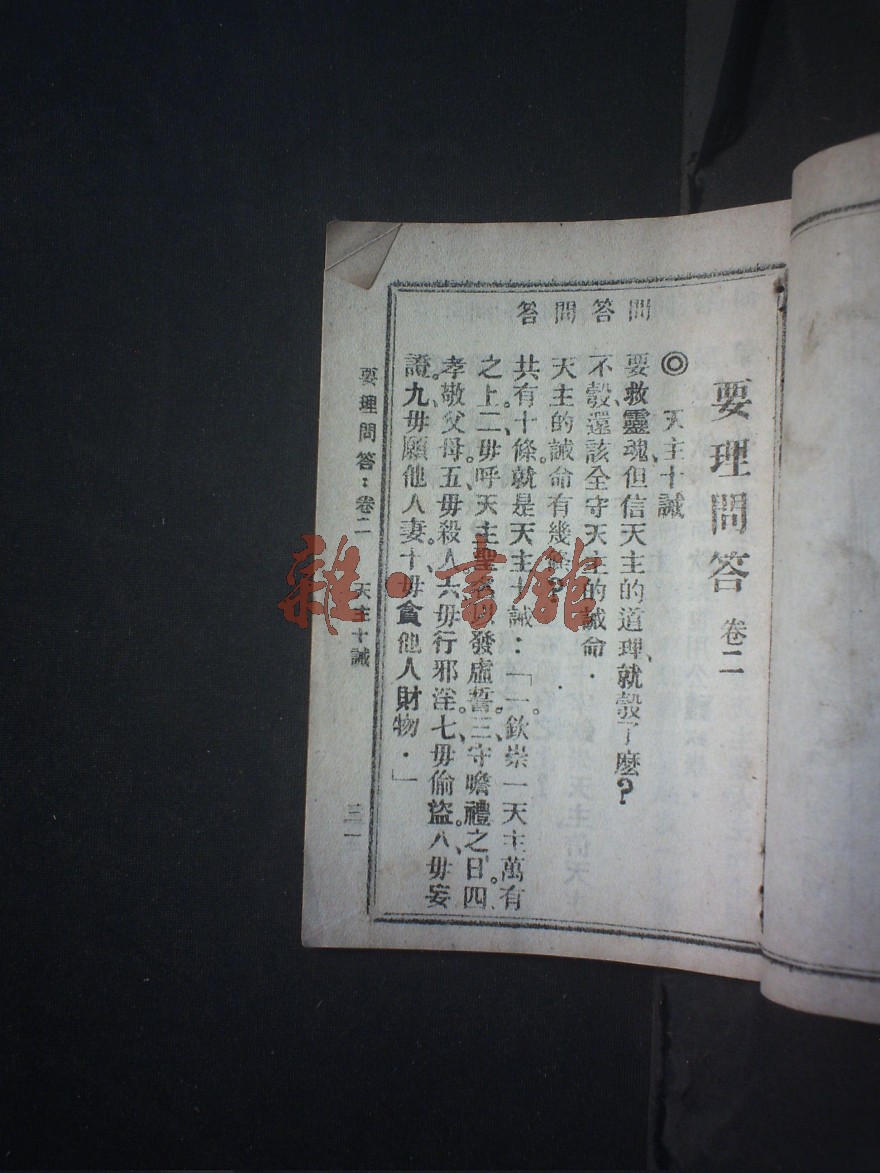 要理問答 卷二
◎ 天主十誡
問 要救靈魂、但信天主的道理、就彀了麽？
答 不彀、還該全守天主的誡命．
問 天主的誡命有幾條？
答 共有十條。就是天主十誡：「一、欽崇一天主萬有
之上。二、毋呼天主聖名以發虛誓。三、守瞻禮之日。四、
孝敬父母。五、毋殺人。六、毋行邪淫。七、毋偷盜。八、毋妄
證。九、毋願他人妻。十、毋貪他人財物．」
要理問答：卷二 天主十誡 三一
雜·書館